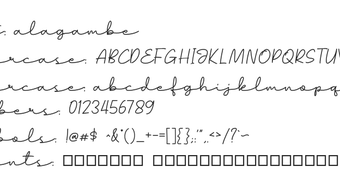 t: alagambe
rcase: ABCDEFGHIJKLMNOPQRSTUV
rcase: abcdefghijklmnopq
bers: 0123456789
bols: !@#$ ^&*()_+-=[]{};:'",.<>/?`~
nts: